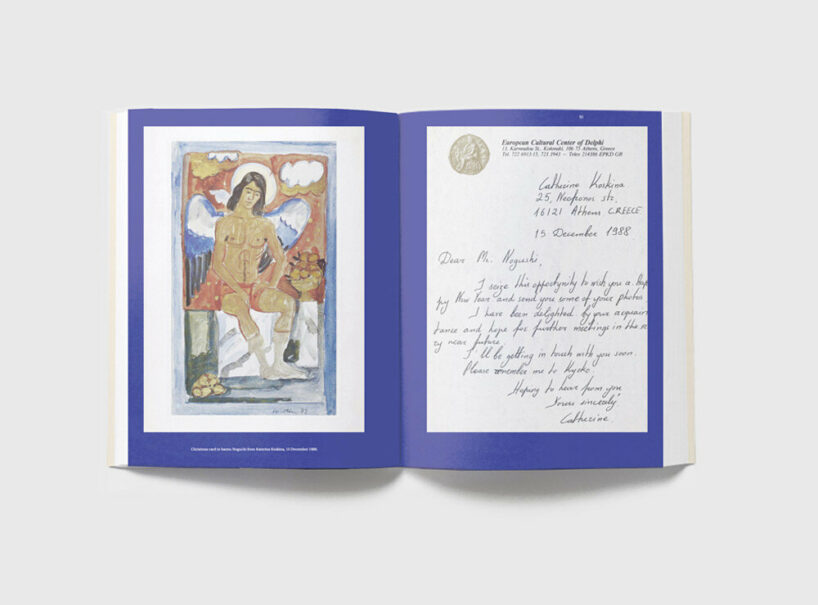 Christmas card to Isamu Noguchi from Katerina Koskina, 15 December 1988.
European Cultural Center of Delphi
Tel. 722 6913-15, 721 1943 — Telex 214386 EPKD GR
Catherine Koskina
25, Neofronos str.
16121 Athens, GREECE
15 December 1988
Dear Mr. Noguchi,
I seize this opportunity to wish you a Hap
py New Year and send you some of your photos.
I have been delighted by your acquain
tance and hope for further meetings in the ve
ry near future.
I'll be getting in touch with you soon.
Please remember me to Kyoko.
Hoping to hear from you
Yours sincerely
Catherine.